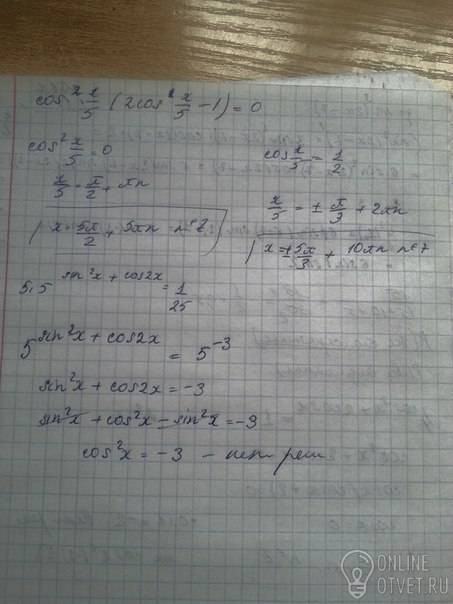 cos² x/5 (2cos x/5 - 1) = 0
cos² x/5 = 0
x/5 = π/2 + πn
x = 5π/2 + 5πn n∈Z
cos x/5 = 1/2
x/5 = ± π/3 + 2πn
x = ± 5π/3 + 10πn n∈Z
5·5^(sin²x + cos2x) = 1/25
5^(sin²x + cos2x) = 5^(-3)
sin²x + cos2x = -3
sin²x + cos²x - sin²x = -3
cos²x = -3 - нет реш
ONLINE
OTVET.RU